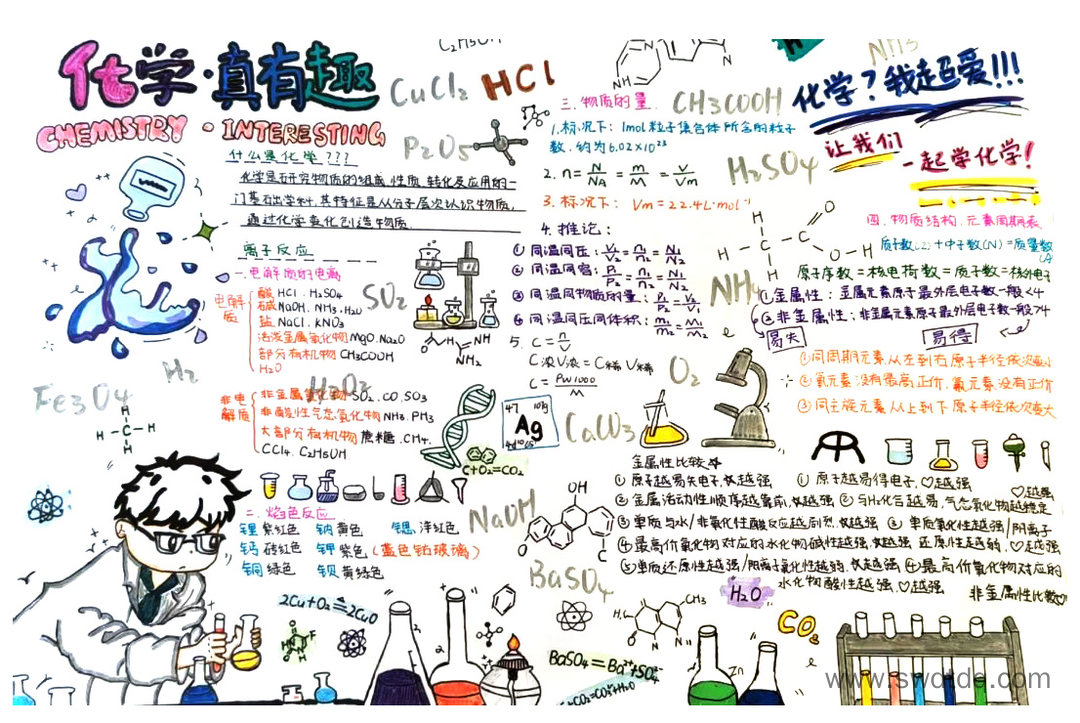 化学·真有趣
CHEMISTRY · INTERESTING
什么是化学???
化学是研究物质的组成、性质、转化及应用的一
门基础学科,其特征是从分子层次认识物质,
通过化学变化创造物质.
离子反应
一.电解质的电离
电解质
酸 HCl . H₂SO₄
碱 NaOH . NH₃·H₂O
盐 NaCl . KNO₃
活泼金属氧化物 MgO. Na₂O
部分有机物 CH₃COOH
H₂O
非电解质
非金属氧化物 SO₂ . CO . SO₃
非酸性气态氢化物 NH₃ . PH₃
大部分有机物 蔗糖 . CH₄.
CCl₄. C₂H₅OH
二.焰色反应
锂 紫红色 钠 黄色 锶 洋红色
钙 砖红色 钾 紫色 (蓝色钴玻璃)
铜 绿色 钡 黄绿色
C₂H₅OH
CuCl₂
HCl
P₂O₅
SO₂
H₂
H₂O₂
Fe₃O₄
H
H
C
H
H
2Cu+O₂=2CuO
C+O₂=CO₂
NaOH
BaSO₄
三.物质的量
1.标况下: 1mol粒子集合体所含的粒子
数.约为6.02×10²³
2. n= N/NA = m/M = V/Vm
3. 标况下: Vm=22.4L·mol⁻¹
4. 推论:
① 同温同压: V₁/V₂=n₁/n₂=N₁/N₂
② 同温同容: P₁/P₂=n₁/n₂=N₁/N₂
③ 同温同物质的量: P₁/P₂=V₂/V₁
④ 同温同压同体积: m₁/m₂=M₁/M₂
5. C=n/V
C浓V浓=C稀V稀
C=ρW1000/M
47
Ag
CaCO₃
O₂
NH₄
NH₃
CH₃COOH
H₂SO₄
化学?我超爱!!!
让我们
一起学化学!
四.物质结构.元素周期表
质子数(Z)+中子数(N)=质量数(A)
原子序数=核电荷数=质子数=核外电子
①金属性: 金属元素原子最外层电子数一般<4
②非金属性: 非金属元素原子最外层电子数一般>4
易失
易得
①同周期元素从左到右原子半径依次减小
②氧元素没有最高正价,氟元素没有正价
③同主族元素从上到下原子半径依次增大
金属性比较☆
① 原子越易失电子,☆越强
② 金属活动性顺序越靠前,☆越强
③单质与水/非氧化性酸反应越剧烈,☆越强
④最高价氧化物对应的水化物碱性越强,☆越强
⑤单质还原性越强/阳离子氧化性越弱,☆越强
① 原子越易得电子,♡越强
② 与H₂化合越易,气态氢化物越稳定
♡越强
③ 单质氧化性越强/阴离子
还原性越弱,♡越强
④最高价氧化物对应的
水化物酸性越强,♡越强
非金属性比较♡
H₂O
CO₂
BaSO₄=Ba²⁺+SO₄²⁻
Zn
www.swdtdq.com